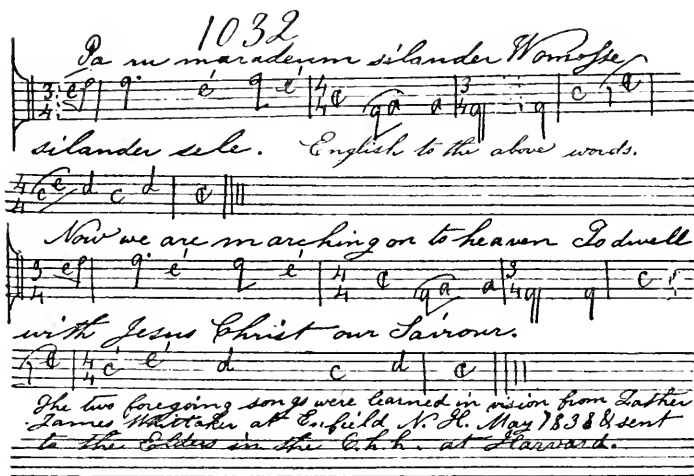 1032
Pa ru maradeum silander Womosse
silander sele. English to the above words.
Now we are marching on to heaven To dwell
with Jesus Christ our Saviour.
The two foregoing songs were learned in vision from Father
James Whittaker at Enfield N. H. May 1838 & sent
to the Elders in the C.h.h. at Harvard.